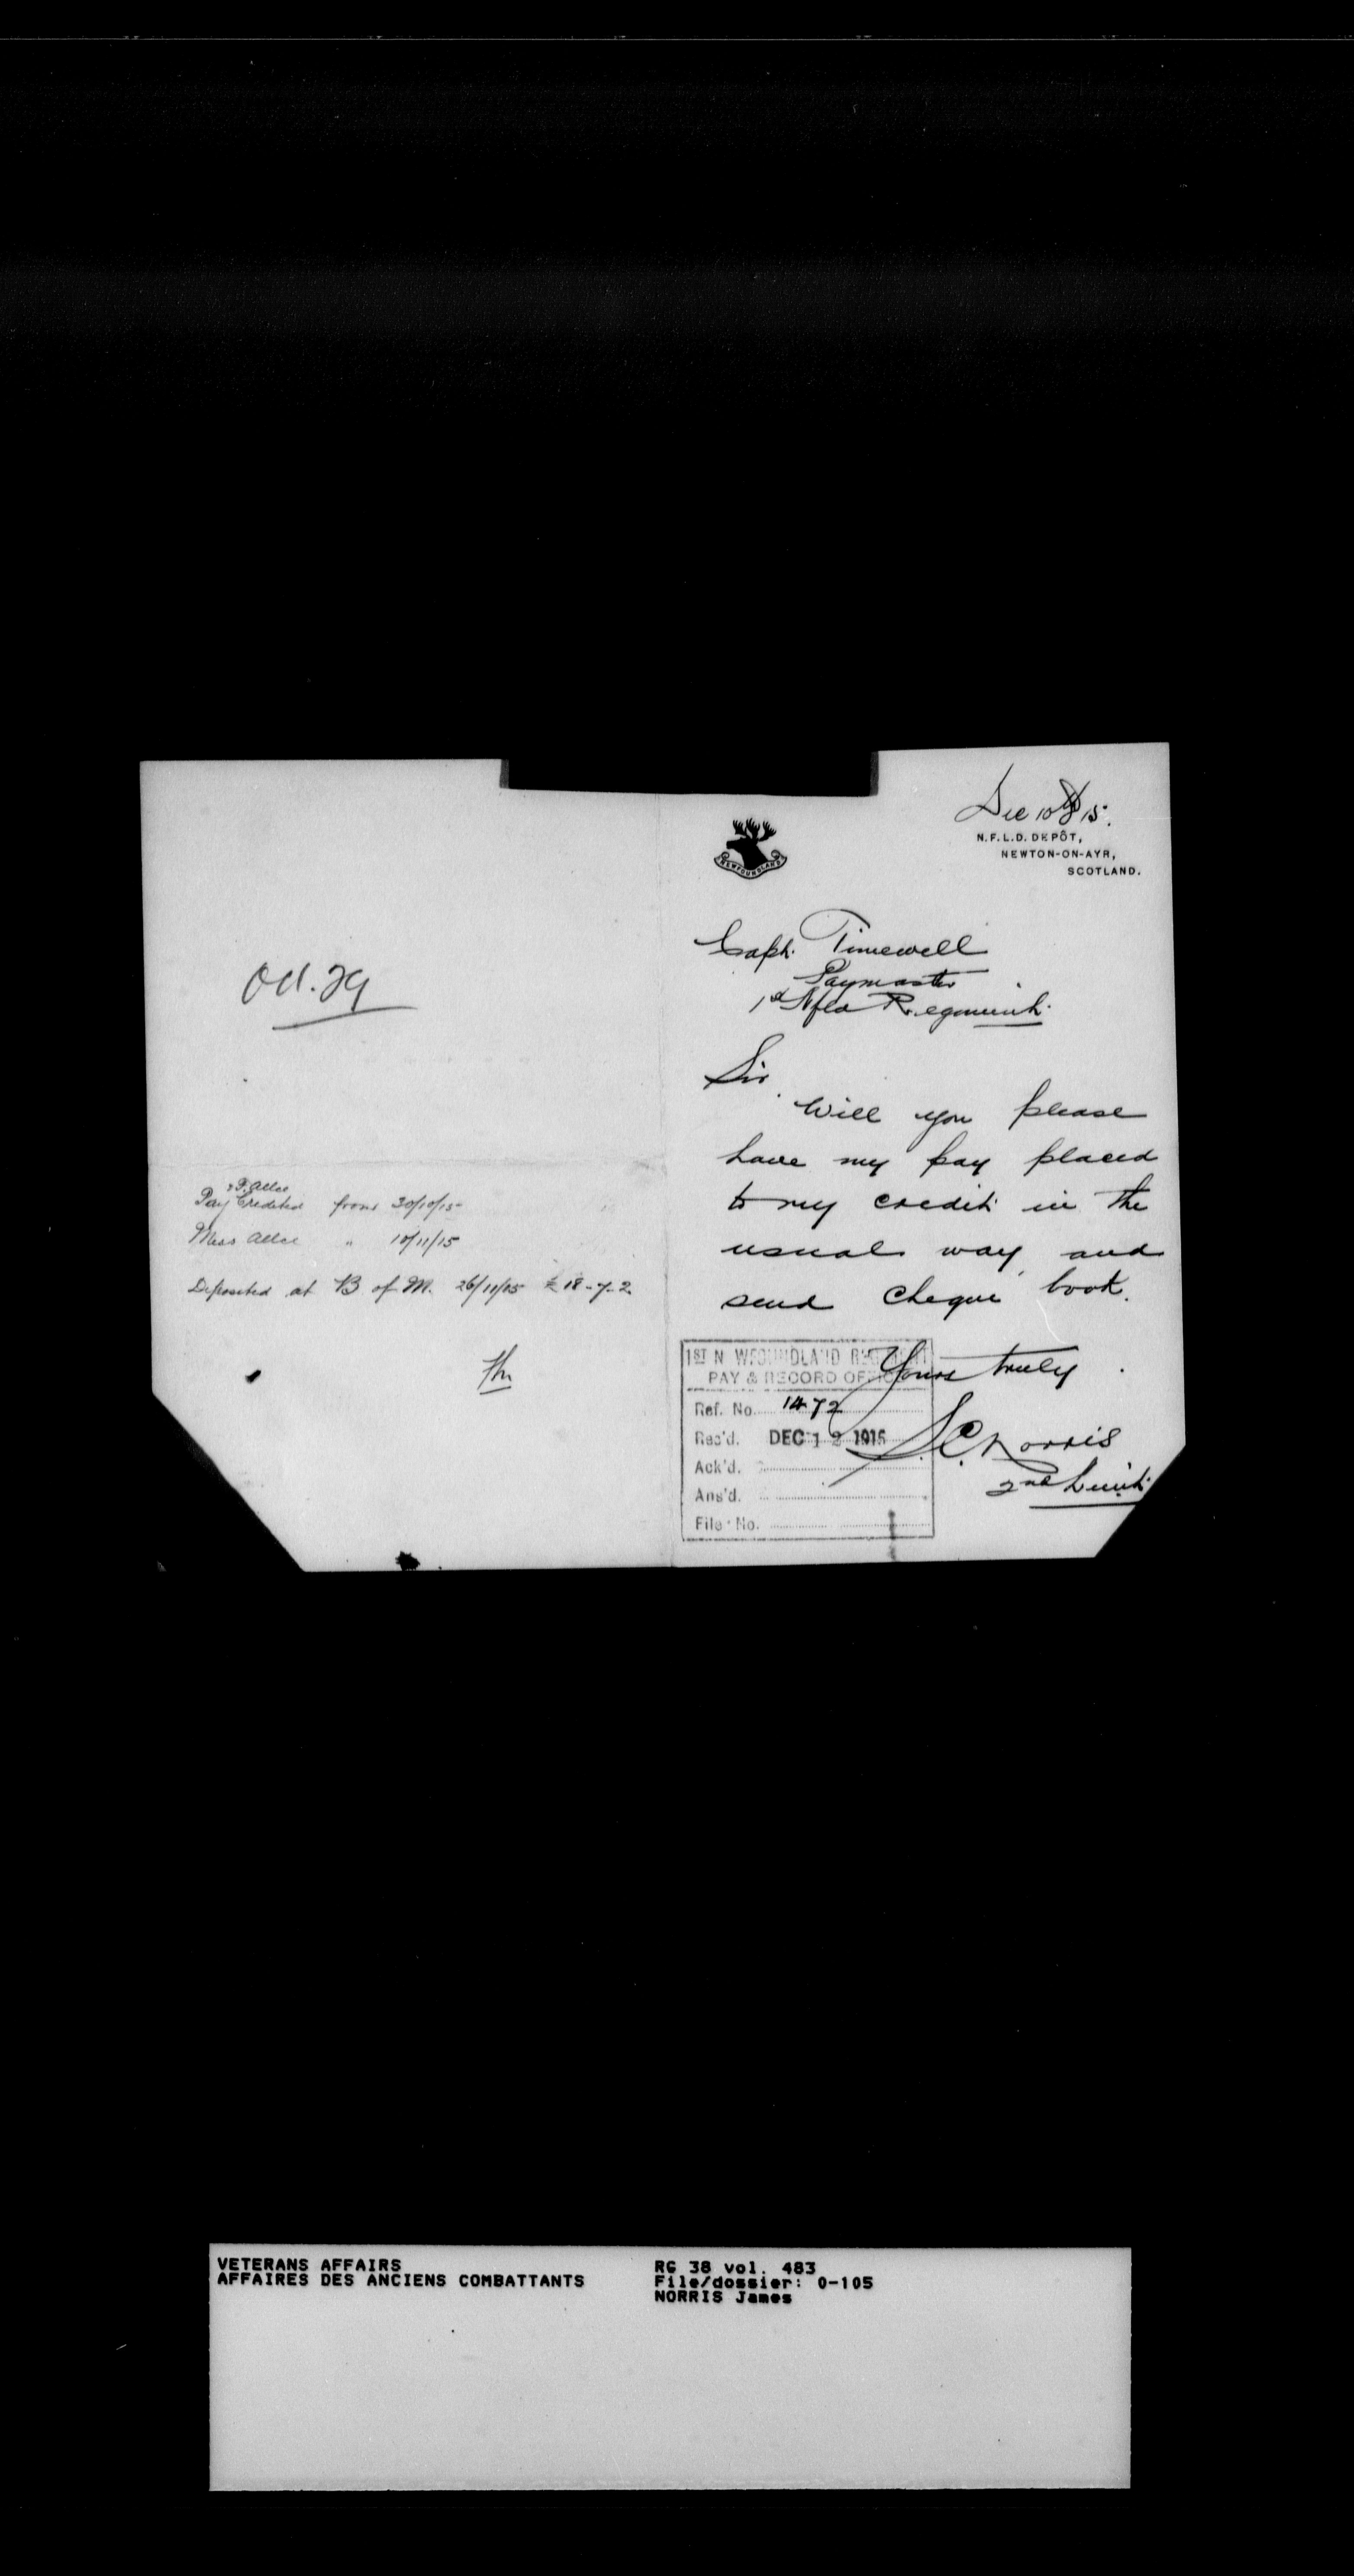 Oct. 29
& F. Allce
Pay Credited from 30/10/15
Mess Allce " 10/11/15
Deposited at B of M. 26/11/15 £18-7-2
Dec 10th 15.
N.F.L.D. DEPÔT,
NEWTON-ON-AYR,
SCOTLAND.
NEWFOUNDLAND
Capt. Timewell
Paymaster
1st Nfld Regiment.
Sir
Will you please
have my pay placed
to my credit in the
usual way and
send cheque book.
Yours truly
S.C. Norris
2nd Lieut.
1ST N WFOUNDLAND REGIMENT
PAY & RECORD OFFICE
Ref. No. 1472
Rec'd. DEC 12 1915
Ack'd.
Ans'd.
File No.
VETERANS AFFAIRS
AFFAIRES DES ANCIENS COMBATTANTS
RG 38 vol. 483
File/dossier: 0-105
NORRIS James